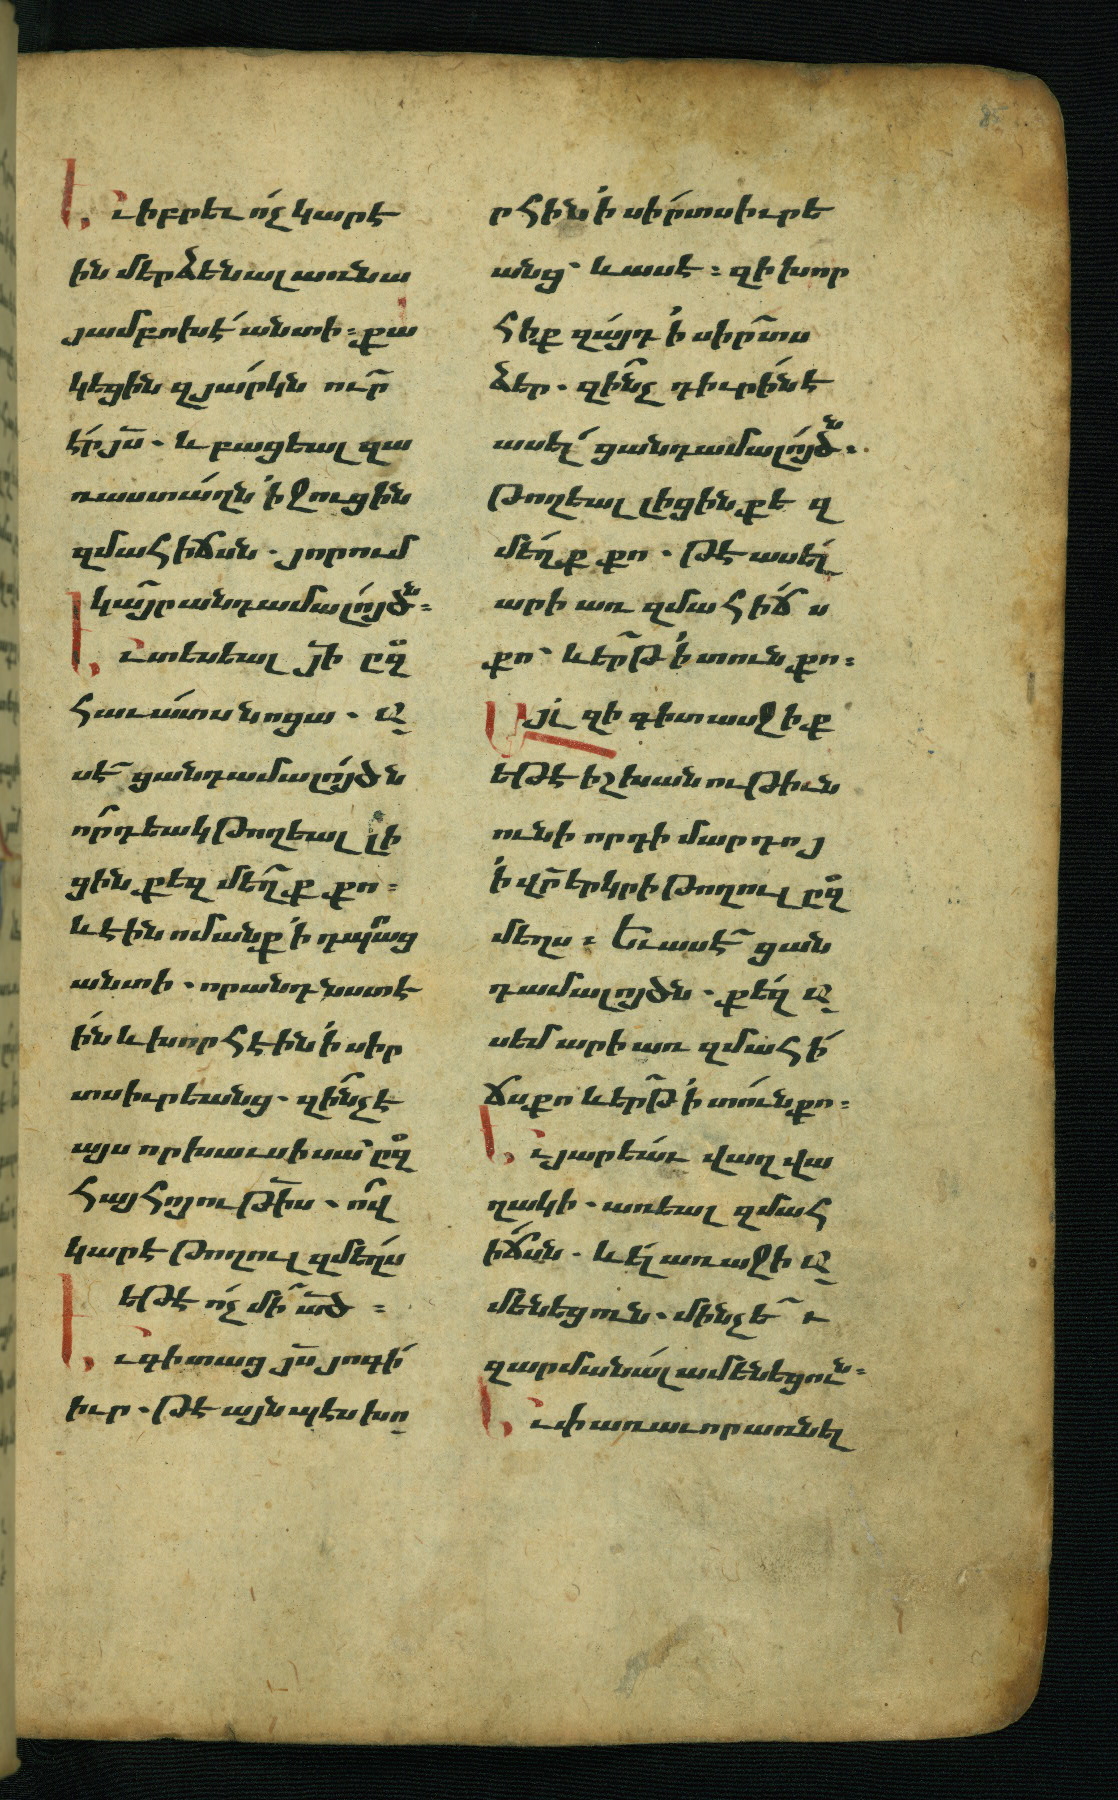 Եւ իբրեւ ոչ կարէ
ին մերձենալ առ նա
յամբոխէ անտի։ քա
կեցին զյարկն ուր
էր յս. և բացեալ զա
ռաստաղն ՚ի ջուցին
զմահիճսն. յորում
կայր անդամալոյծն։
Եւ տեսեալ յի ըզ
հաւատս նոցա. ա
սէ ցանդամալոյծն
որդեակ թողեալ լի
ցին քեզ մեղք քո։
և էին ոմանք ՚ի դպաց
անտի. որ անդ նստէ
ին և խորհէին ՚ի սիր
տս իւրեանց. զինչ է
այս որ խաւսի սա ըզ
հայհոյութիս. ով
կարէ թողուլ զմեղս
եթէ ոչ մի ած։
Եւ գիտաց յս յոգի
իւր. թէ այնպէս խո
րհին ՚ի սիրտս իւրե
անց՝ և ասէ։ զի խոր
հիք զայդ ՚ի սիրտս
ձեր. զինչ դիւրին է
ասել ցանդամալոյծն։
Թողեալ լիցին քե զ
մեղք քո. թէ ասել
արի առ զմահիճ ս
քո՝ և երթ ՚ի տուն քո։
Այլ զի գիտասջիք
եթէ իշխանութիւն
ունի որդի մարդոյ
՚ի վր երկրի թողուլ ըզ
մեղս։ Եւ ասէ ցան
դամալոյծն. քեզ ա
սեմ արի առ զմահի
ճս քո և երթ ՚ի տուն քո։
Եւ յարեաւ վաղվա
ղակի. առեալ զմահ
իճսն. և ել առաջի ա
մենեցուն. մինչե ւ
զարմանալ ամենեցուն։
Եւ փառաւոր առնել